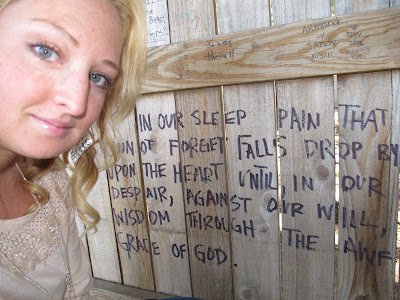 I was
there!!
IN OUR SLEEP PAIN THAT
FORGET FALLS DROP BY
UPON THE HEART UNTIL, IN OUR
DESPAIR, AGAINST OUR WILL,
WISDOM THROUGH THE AWF
GRACE OF GOD.